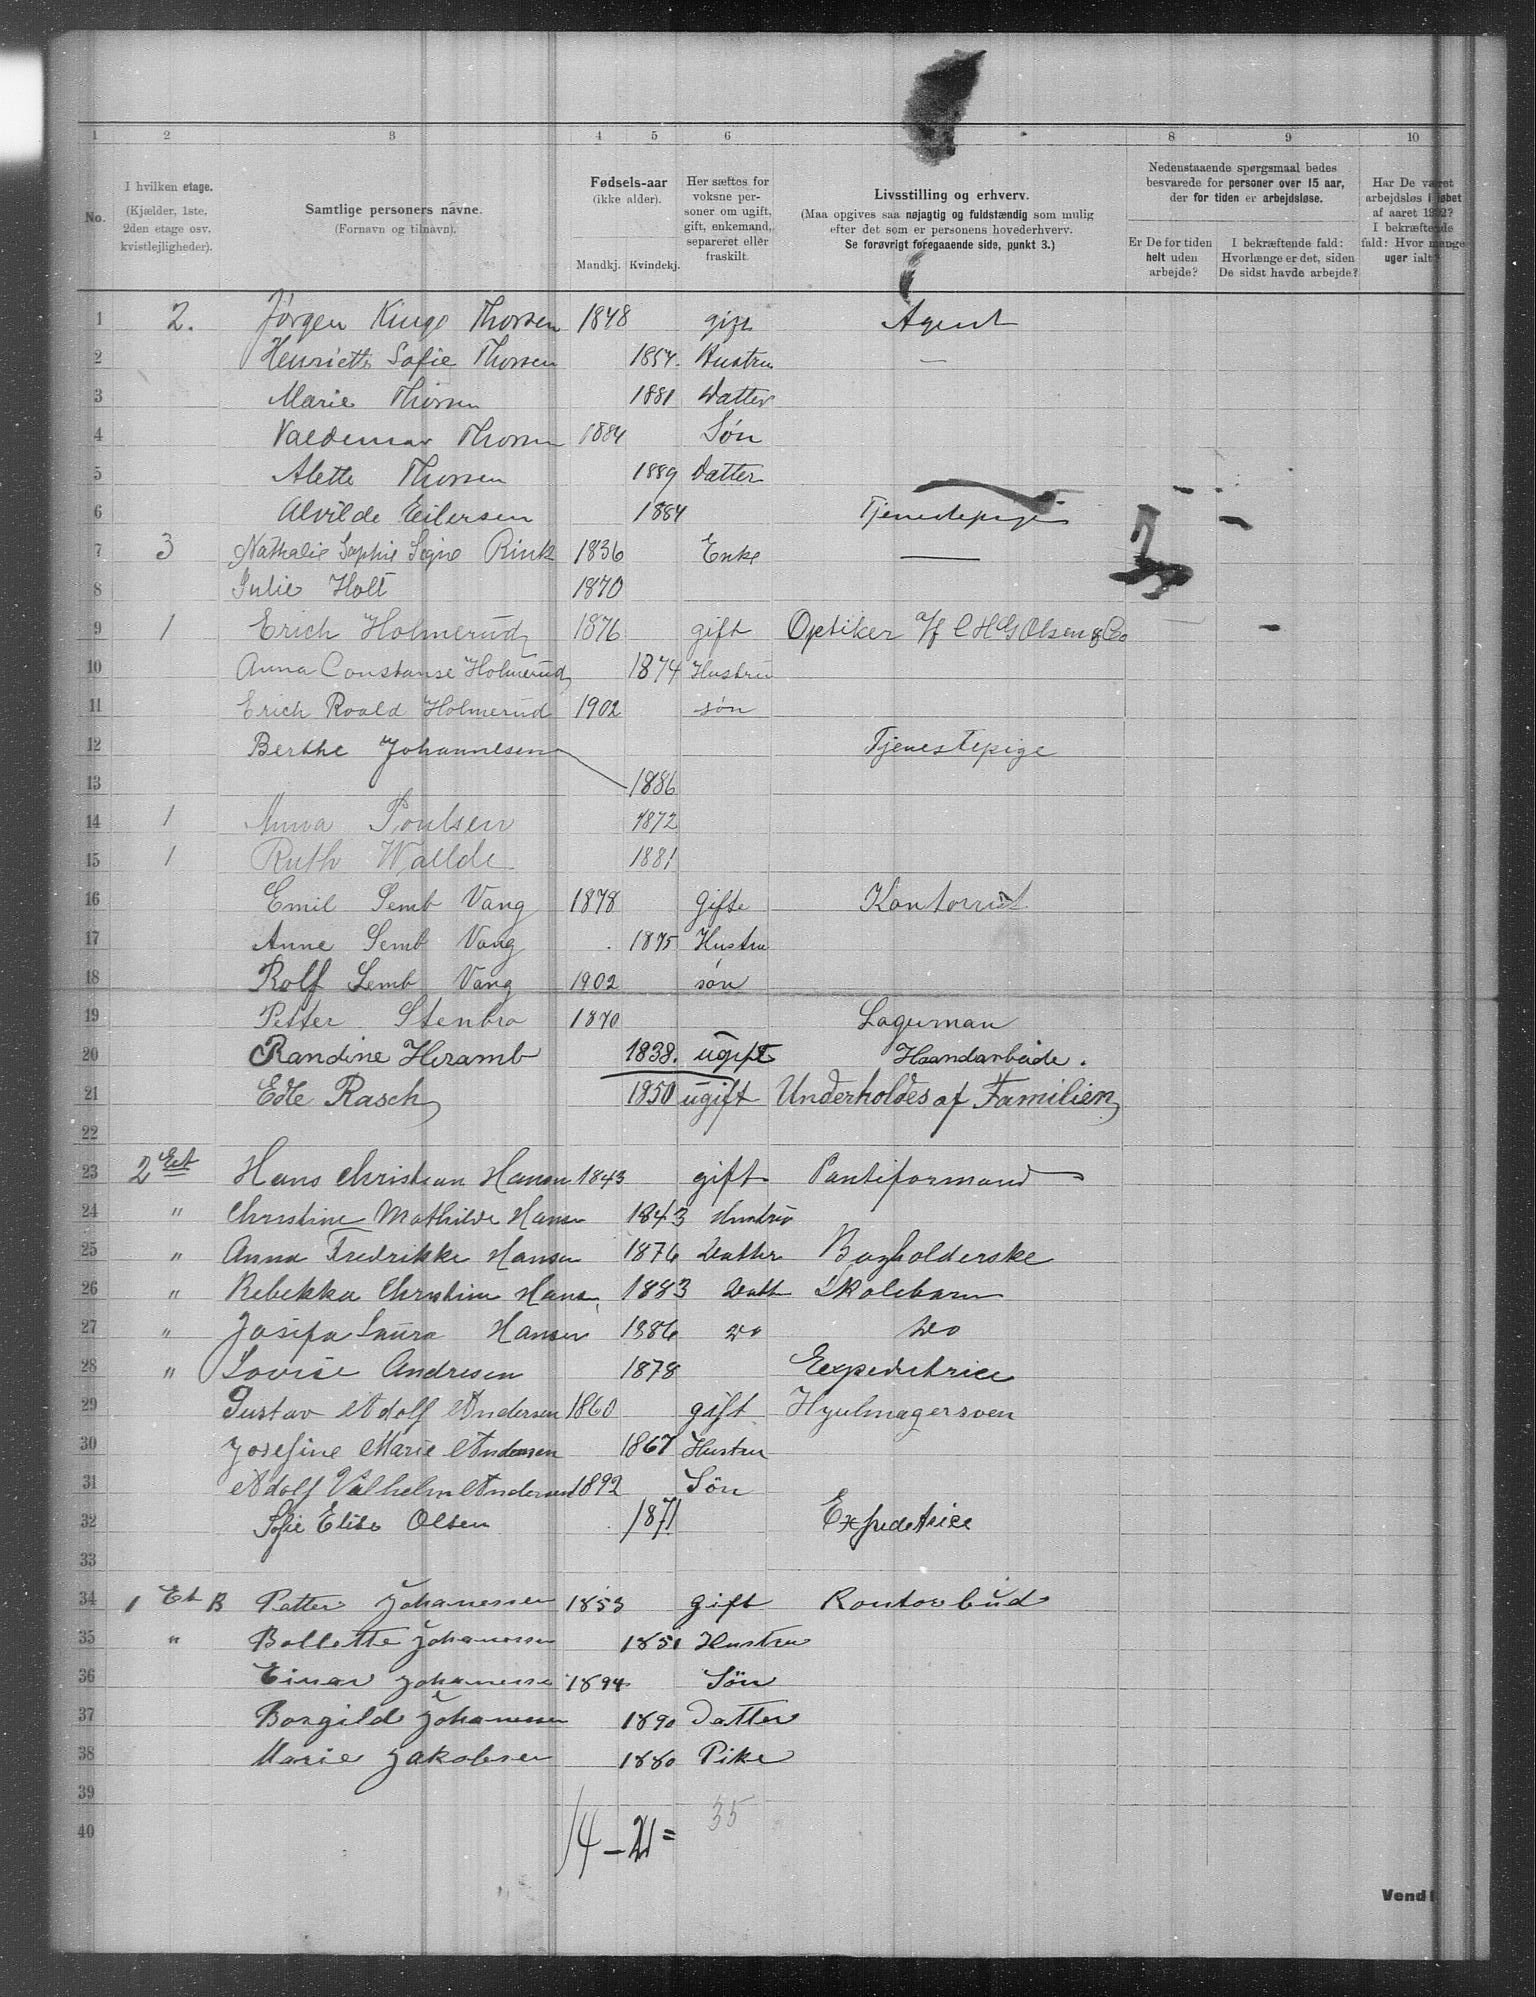 1 2 3 4 5 6 7 8 9 10
No.
I hvilken etage.
(Kjælder, 1ste, 2den etage osv. kvistlejligheder).
Samtlige personers navne.
(Fornavn og tilnavn).
Fødsels-aar
(ikke alder).
Mandkj. Kvindekj.
Her sættes for voksne personer om ugift, gift, enkemand, separeret eller fraskilt.
Livsstilling og erhverv.
(Maa opgives saa nøjagtig og fuldstændig som mulig efter det som er personens hovederhverv.
Se forøvrigt foregaaende side, punkt 3.)
Nedenstaaende spørgsmaal bedes besvarede for personer over 15 aar, der for tiden er arbejdsløse.
Er De for tiden helt uden arbejde?
I bekræftende fald: Hvorlænge er det, siden De sidst havde arbejde?
Har De været arbejdsløs i løbet af aaret 1902? I bekræftende fald: Hvor mange uger ialt?
1 2. Jørgen Kinge Thorsen 1848 gift Agent
2 Henriette Sofie Thorsen 1854. Hustru —
3 Marie Thorsen 1881 Datter
4 Valdemar Thorsen 1884 Søn
5 Alette Thorsen 1889 Datter
6 Alvilde Eilersen 1884 Tjenestepige
7 3 Nathalie Sophie Signe Rink 1836 Enke —
8 Julie Holt 1870
9 1 Erich Holmerud 1876 gift Optiker Olsen & Co
10 Anna Constanse Holmerud 1874 Hustru
11 Erich Roald Holmerud 1902 søn
12 Berthe Johannesen Tjenestepige
13 1886
14 1 Anna Poulsen 1872
15 1 Ruth Wallde 1881
16 Emil Semb Vang 1878 Gifte Kontorist
17 Anne Semb Vang 1875 Hustru
18 Rolf Semb Vang 1902 søn
19 Petter Stenbro 1870 Lagerman
20 Randine Heramb 1838. ugift Haandarbeide.
21 Edle Rasch 1850 ugift Underholdes af Familien
22
23 2 Et Hans Christian Hansen 1843 gift Pantiformand
24 " Christine Mathilde Hansen 1843 Hustru
25 " Anna Fredrikke Hansen 1876 Datter Bogholderske
26 " Rebekka Christine Hansen 1883 Datt Skolebarn
27 " Josefa Laura Hansen 1886 do do
28 " Lovise Andresen 1878 Eexpeditrice
29 Gustav Adolf Andersen 1860 gift Hjulmagersven
30 Josefine Marie Andersen 1867 Hustru
31 Adolf Vilhelm Andersen 1892 Søn
32 Sofie Elise Olsen 1871 Expeditrice
33
34 1 Et B Petter Johanessen 1853 gift Kontorbud
35 " Bollette Johanessen 1851 Hustru
36 Einar Johanessen 1894 Søn
37 Borgild Johanessen 1890 Datter
38 Marie Jakobsen 1880 Pike
39
40
14 – 21 = 35
Vend!